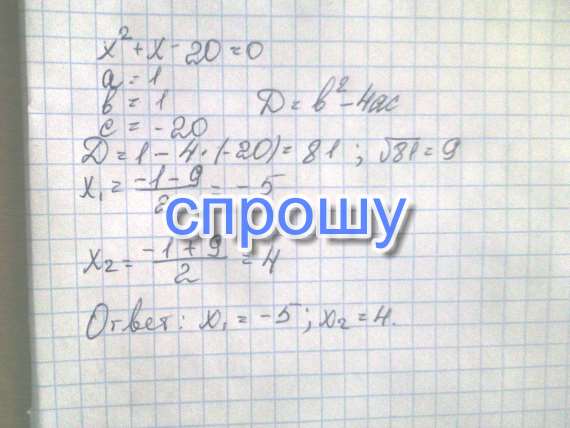 x² + x - 20 = 0
a = 1
b = 1 D = b² - 4ac
c = -20
D = 1 - 4 · (-20) = 81 ; √81 = 9
x₁ = (-1 - 9)/2 = -5
спрошу
x₂ = (-1 + 9)/2 = 4
Ответ: x₁ = -5 ; x₂ = 4.